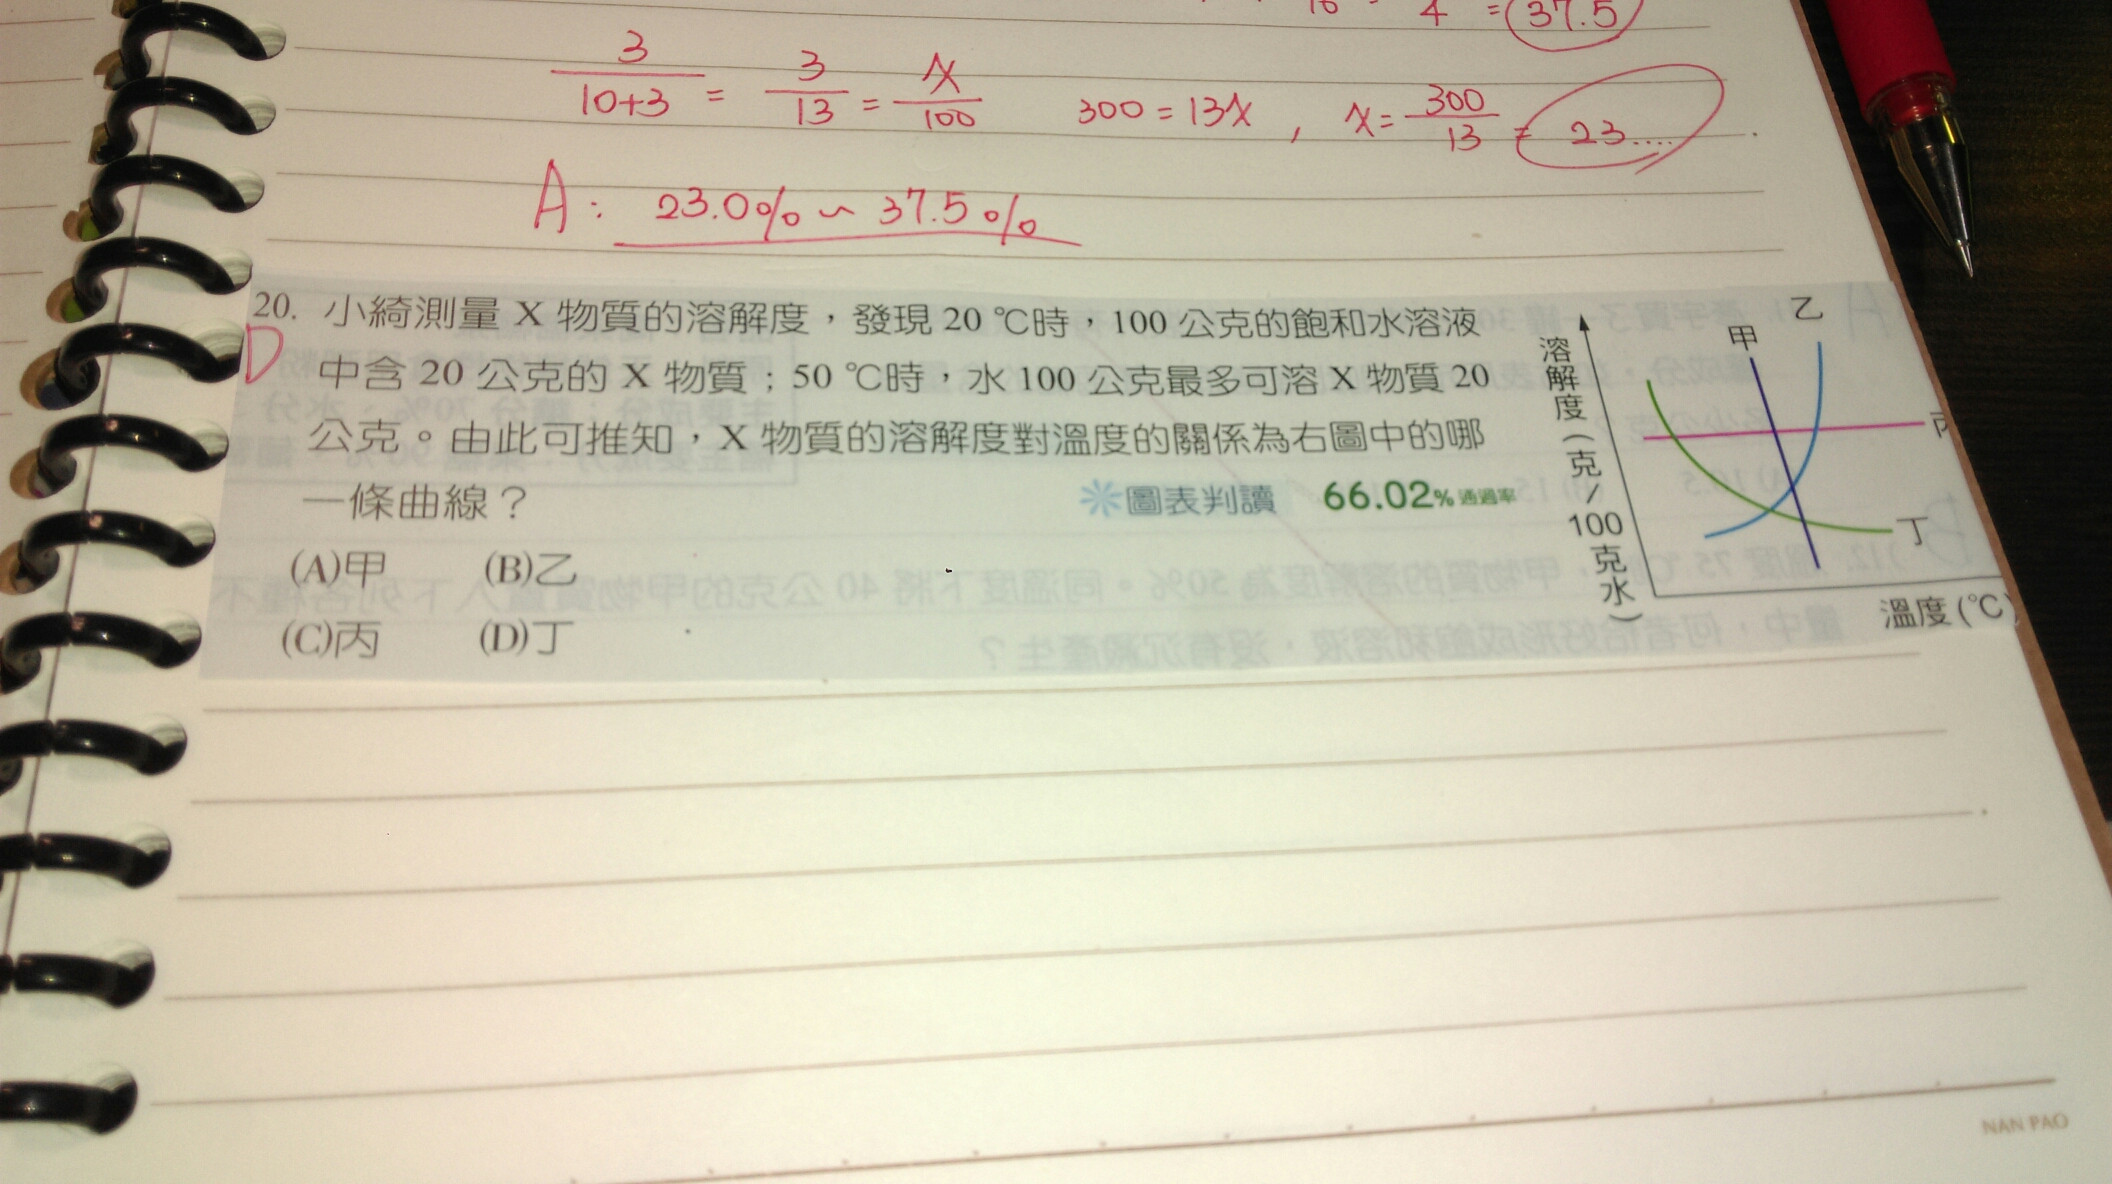 16 4 = 37.5
3/(10+3) = 3/13 = x/100 300 = 13x , x = 300/13 = 23....
A: 23.0% ~ 37.5%
20. 小綺測量 X 物質的溶解度，發現 20 ℃時，100 公克的飽和水溶液
D
中含 20 公克的 X 物質；50 ℃時，水 100 公克最多可溶 X 物質 20
公克。由此可推知，X 物質的溶解度對溫度的關係為右圖中的哪
一條曲線？ 圖表判讀 66.02% 通過率
(A)甲 (B)乙
(C)丙 (D)丁
溶解度（克／100克水）
甲
乙
丁
溫度(℃)
NAN PAO